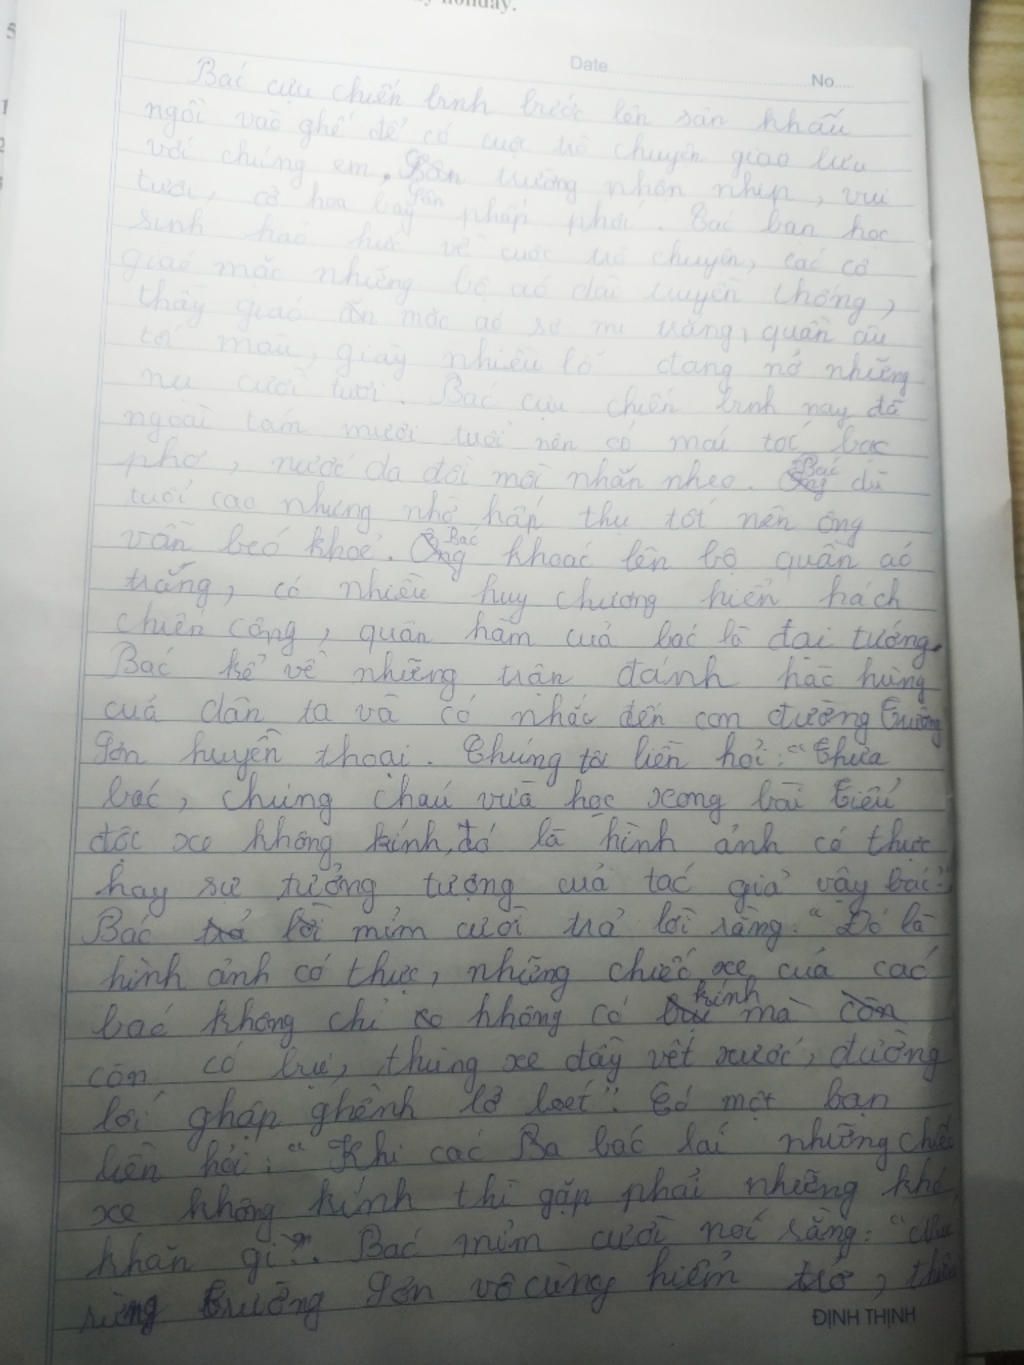 holiday.
Date No
Bác cựu chiến binh bước lên sân khấu
ngồi vào ghế để có cuộc trò chuyện giao lưu
với chúng em. Sân trường nhộn nhịp, vui
tươi, cờ hoa bay phấp phới. Các bạn học
sinh háo hức về cuộc trò chuyện, các cô
giáo mặc những bộ áo dài truyền thống,
thầy giáo mặc áo sơ mi trắng, quần âu
tối màu, giày nhiều lố đang nở những
nụ cười tươi. Bác cựu chiến binh nay đã
ngoài tám mươi tuổi nên có mái tóc bạc
phơ, nước da đồi mồi nhăn nheo. Bác dù
tuổi cao nhưng nhờ hấp thụ tốt nên ông
vẫn béo khoẻ. Bác khoác lên bộ quần áo
trắng, có nhiều huy chương hiển hách
chiến công, quân hàm của bác là đại tướng.
Bác kể về những trận đánh hào hùng
của dân ta và có nhắc đến con đường Trường
Sơn huyền thoại. Chúng tôi liền hỏi: "Thưa
bác, chúng cháu vừa học xong bài tiểu
đội xe không kính, đó là hình ảnh có thực
hay sự tưởng tượng của tác giả vậy bác?"
Bác trả lời mỉm cười trả lời rằng: "Đó là
hình ảnh có thực, những chiếc xe của các
bác không chỉ không có kính mà còn
còn có bụi, thùng xe đầy vết xước, đường
lối ghập ghềnh lở loét". Có một bạn
liền hỏi: "Khi các bác lái những chiếc
xe không kính thì gặp phải những khó
khăn gì?". Bác mỉm cười nói rằng: "
rừng Trường Sơn vô cùng hiểm trở,
ĐỊNH THỊNH